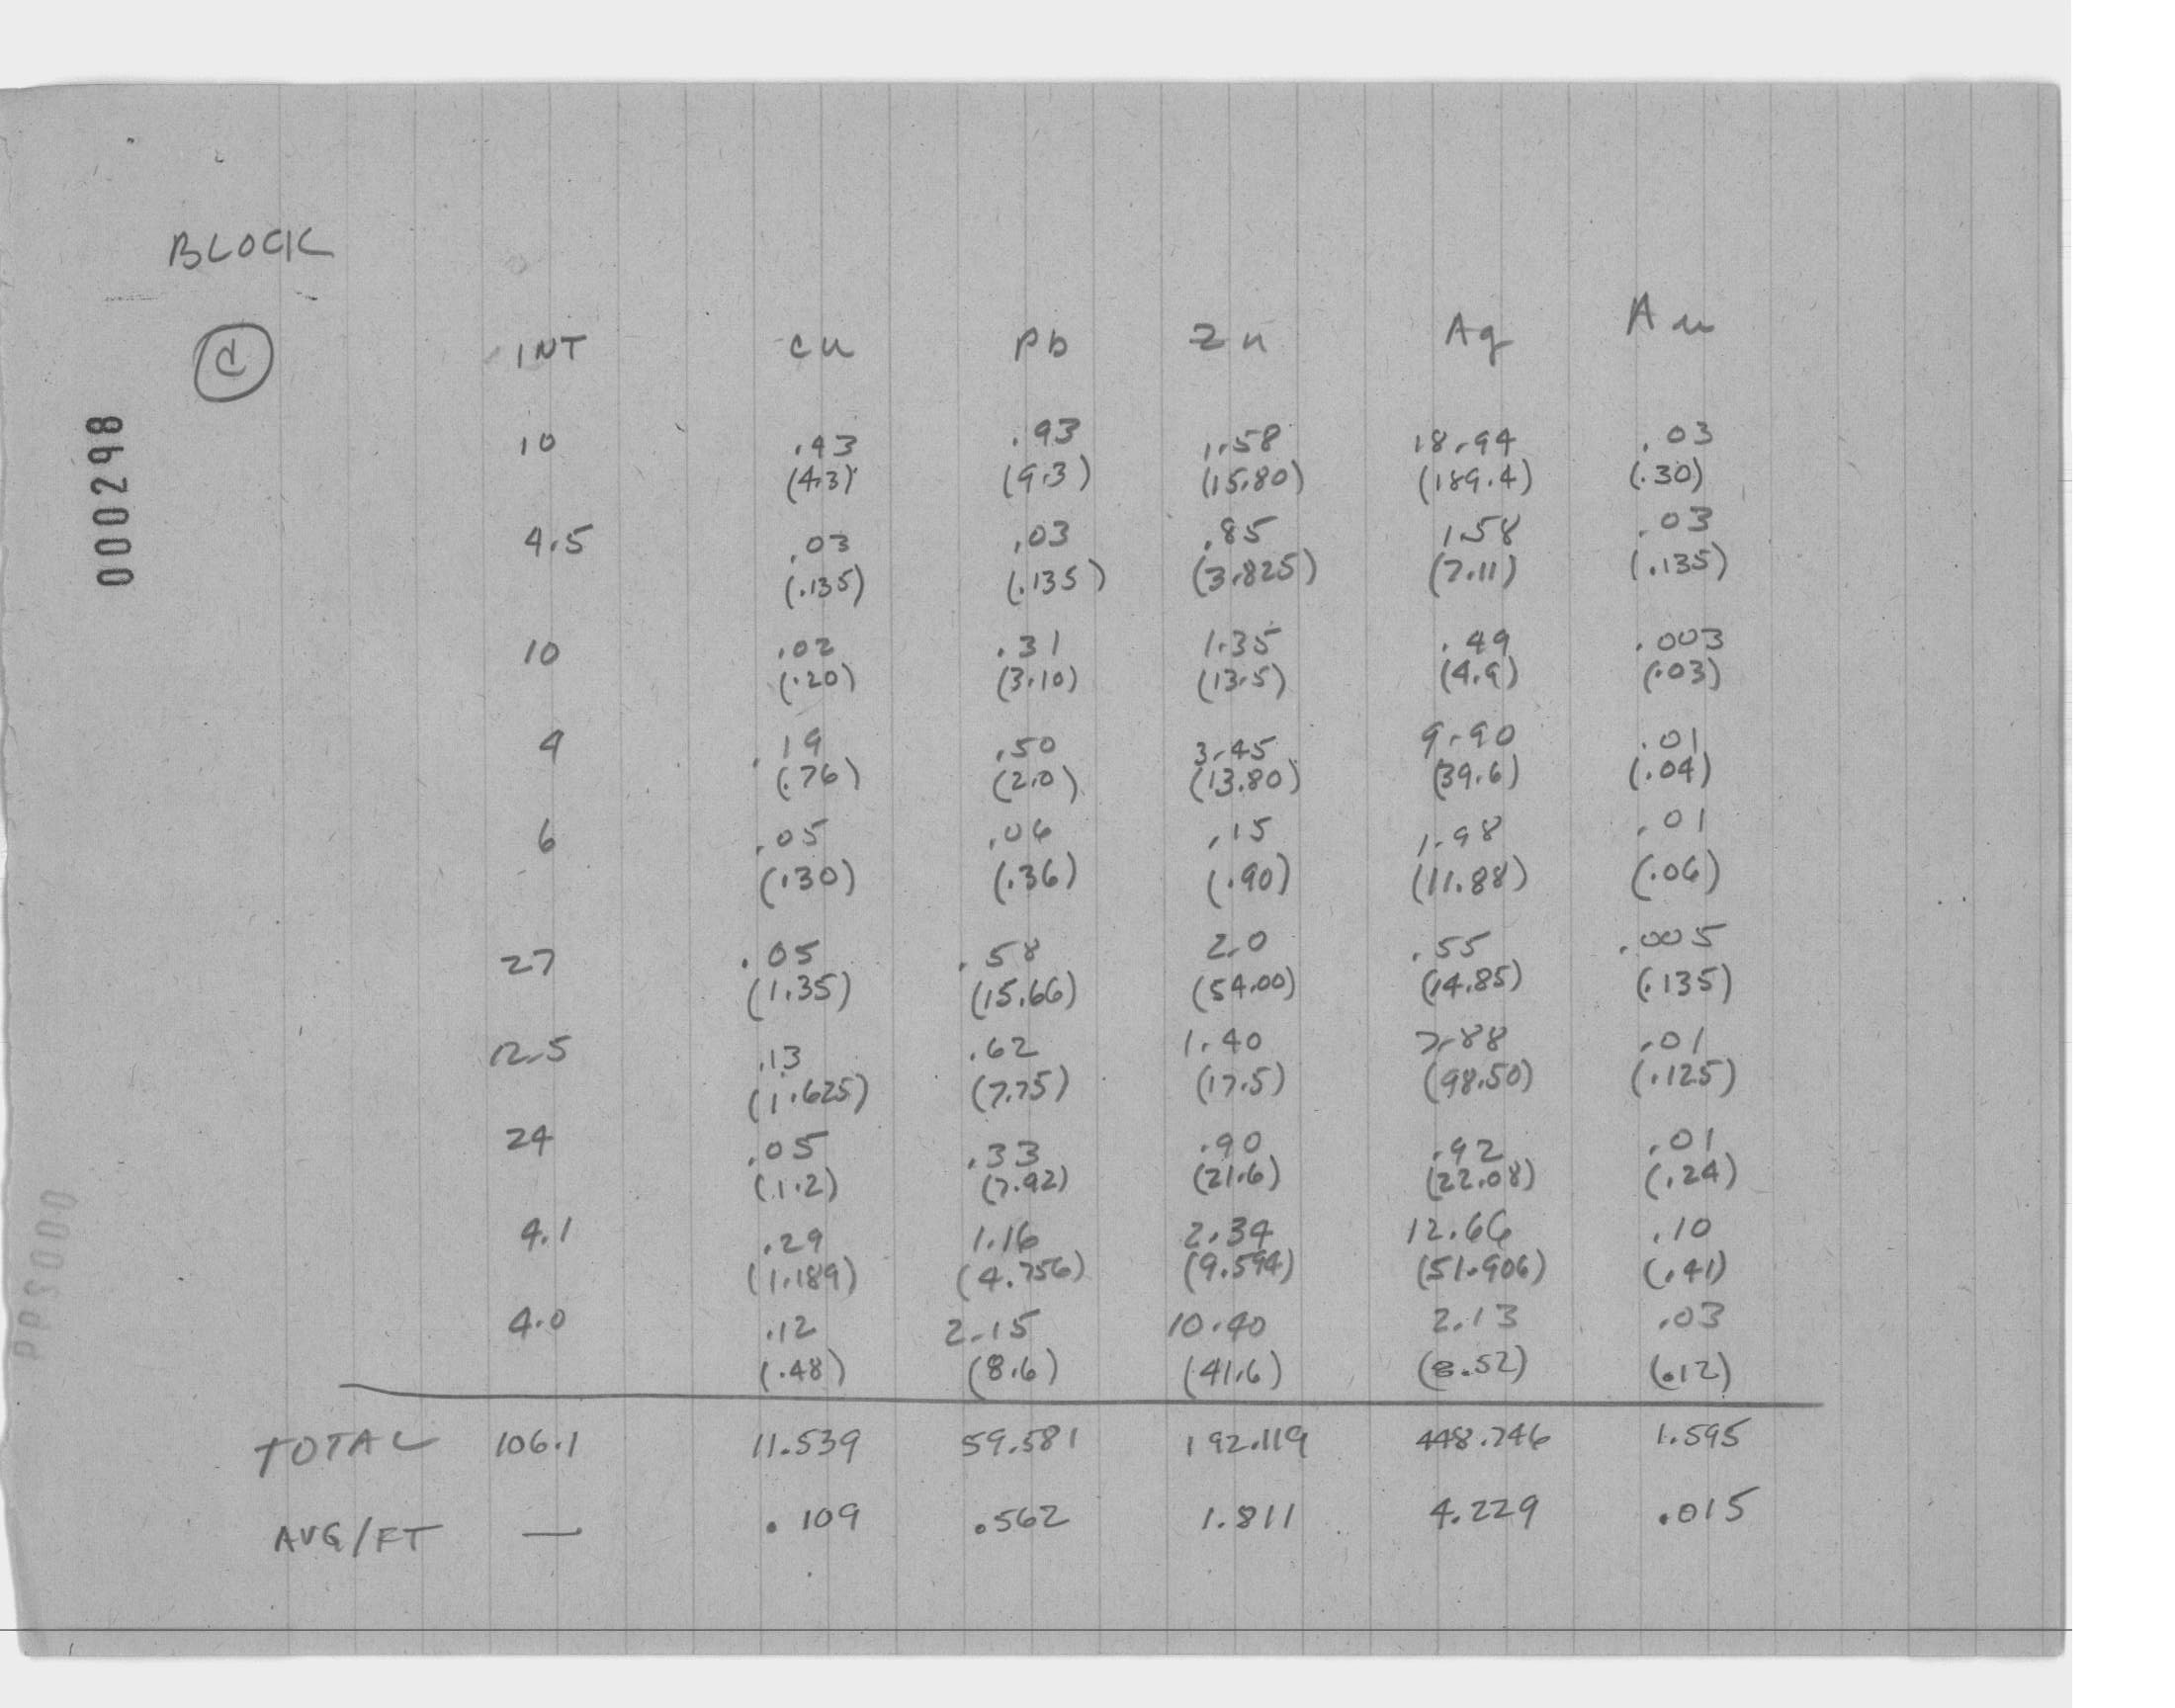 BLOCK
C
000298
INT Cu Pb Zn Ag Au
10 .43 .93 1.58 18.94 .03
(4.3) (9.3) (15.80) (189.4) (.30)
4.5 .03 .03 .85 1.58 .03
(.135) (.135) (3.825) (7.11) (.135)
10 .02 .31 1.35 .49 .003
(.20) (3.10) (13.5) (4.9) (.03)
4 .19 .50 3.45 9.90 .01
(.76) (2.0) (13.80) (39.6) (.04)
6 .05 .06 .15 1.98 .01
(.30) (.36) (.90) (11.88) (.06)
27 .05 .58 2.0 .55 .005
(1.35) (15.66) (54.00) (14.85) (.135)
12.5 .13 .62 1.40 7.88 .01
(1.625) (7.75) (17.5) (98.50) (.125)
24 .05 .33 .90 .92 .01
(1.2) (7.92) (21.6) (22.08) (.24)
4.1 .29 1.16 2.34 12.66 .10
(1.189) (4.756) (9.594) (51.906) (.41)
4.0 .12 2.15 10.40 2.13 .03
(.48) (8.6) (41.6) (8.52) (.12)
TOTAL 106.1 11.539 59.581 192.119 448.746 1.595
AVG/FT — .109 .562 1.811 4.229 .015